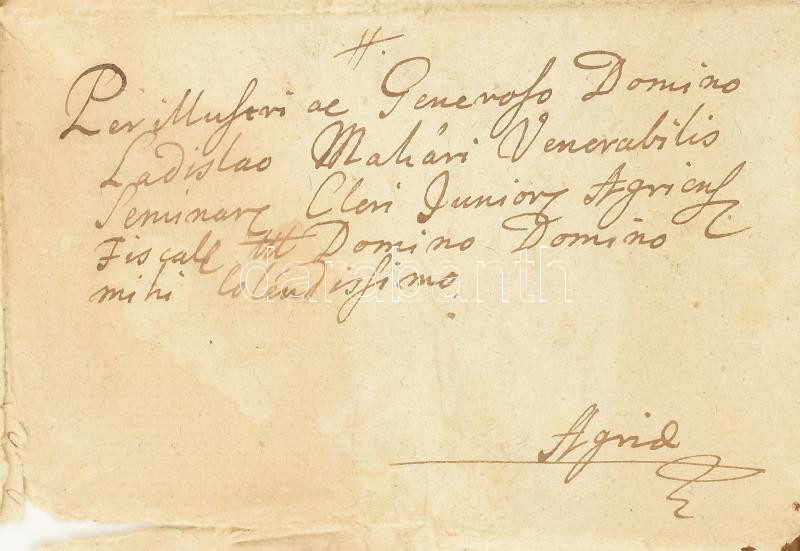 H.
Perillustri ac Generoso Domino
Ladislao Makári Venerabilis
Seminary Cleri Juniorꝝ Agriens.
Fiscali ttt Domino Domino
mihi Colendissimo.
darabanth
Agriæ